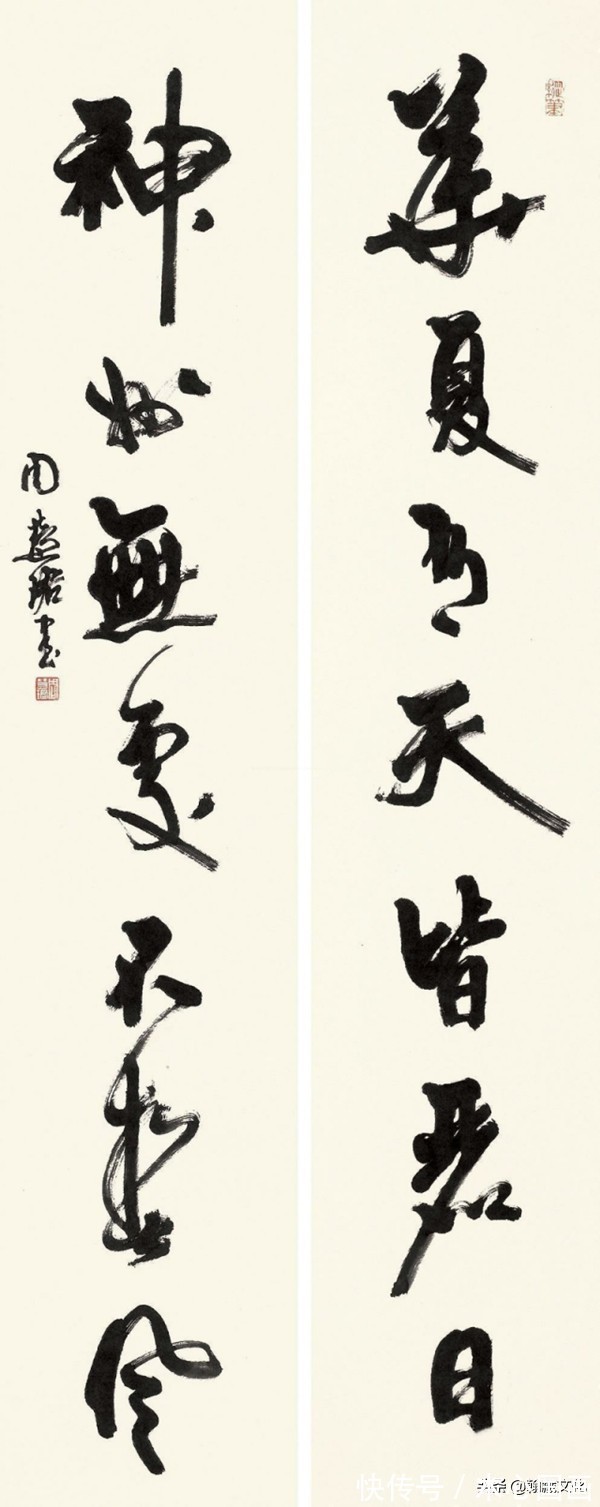 華夏有天皆麗日
神州無處不春風
周慧珺書
快传号 /
头条 @